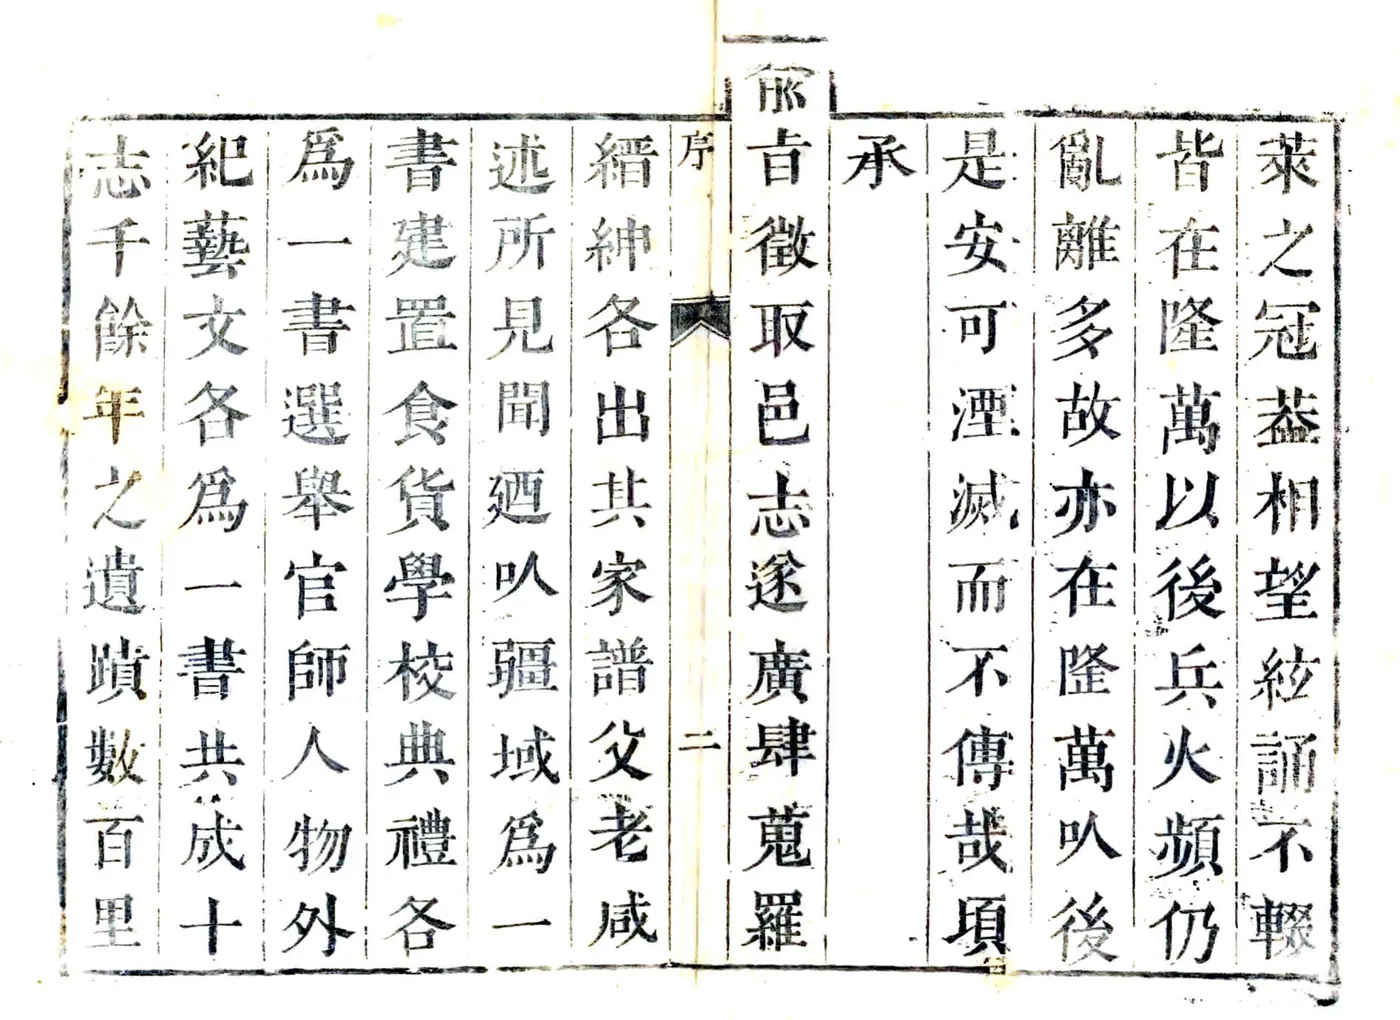 萊之冠葢相望絃誦不輟
皆在隆萬以後兵火頻仍
亂離多故亦在隆萬㕥後
是安可湮滅而不傳哉頃
承
兪㫖徵取邑志遂廣肆蒐羅
序 二
縉紳各出其家譜父老咸
述所見聞廼㕥疆域爲一
書建置食貨學校典禮各
爲一書選舉官師人物外
紀藝文各爲一書共成十
志千餘年之遺蹟數百里